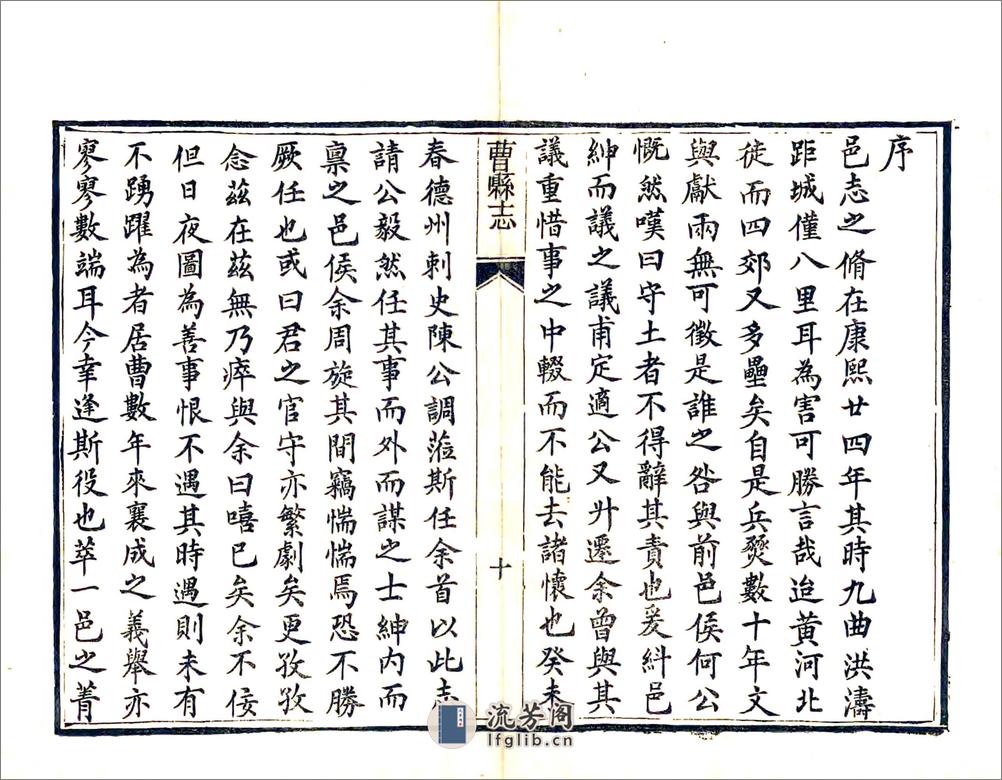 序
邑志之脩在康熙廿四年其時九曲洪濤
距城僅八里耳為害可勝言哉迨黃河北
徙而四郊又多壘矣自是兵燹數十年文
與獻兩無可徵是誰之咎與前邑侯何公
慨然嘆曰守土者不得辭其責也爰糾邑
紳而議之議甫定適公又升遷余曾與其
議重惜事之中輟而不能去諸懷也癸未
曹縣志
十
春德州刺史陳公調蒞斯任余首以此志
請公毅然任其事而外而謀之士紳内而
稟之邑侯余周旋其間竊惴惴焉恐不勝
厥任也或曰君之官守亦繁劇矣更孜孜
念茲在茲無乃瘁與余曰嘻已矣余不佞
但日夜圖為善事恨不遇其時遇則未有
不踴躍為者居曹數年來襄成之義舉亦
寥寥數端耳今幸逢斯役也萃一邑之菁
流芳阁
lfglib.cn